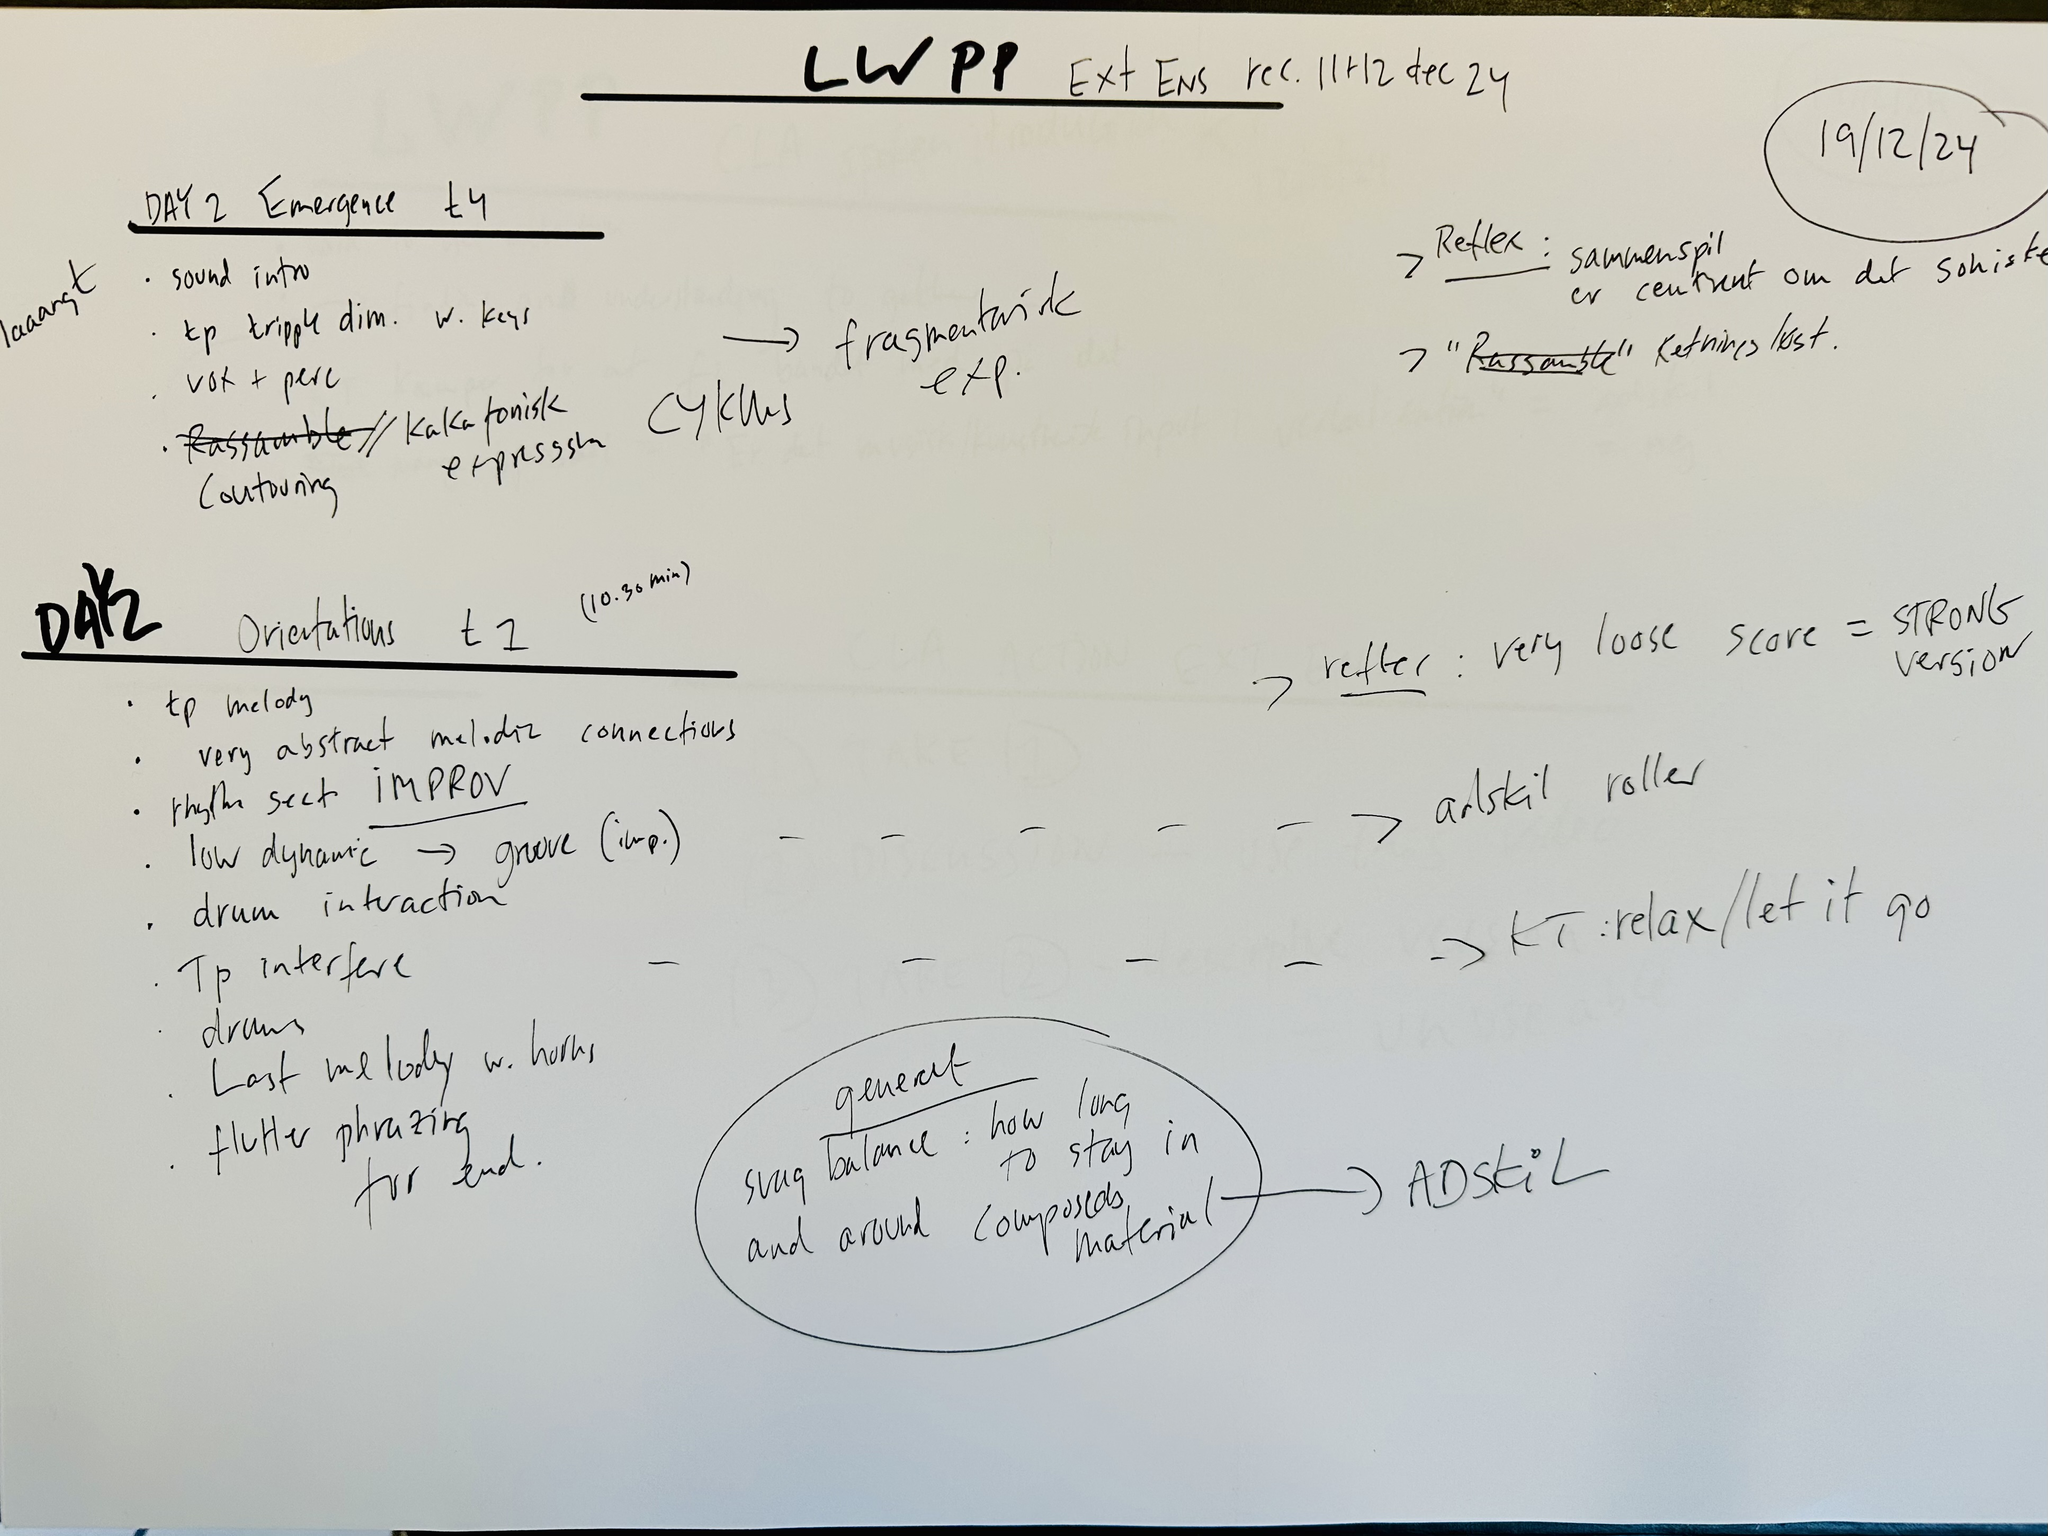 LWPP Ext ENS rec. 11+12 dec 24
19/12/24
DAY 2 Emergence t4
laaangt
· sound intro
· tp tripple dim. w. keys
· vox + perc
· Rassamble // kakafonisk
expresssion
Contouring
CYKLUS
→ fragmentarisk
exp.
> Reflex: sammenspil
er centreret om det soniske
> "Rassamble" Retningsløst.
DAY2 Orientations t1 (10.30 min)
· tp melody
· very abstract melodic connections
· rhythm sect IMPROV
· low dynamic → groove (imp.)
· drum interaction
· Tp interfere
· drums
· Last melody w. horns
· flutter phrazing
for end.
> reflex: very loose score = STRONG
version
- - - - - > adskil roller
- - - - -> KT: relax/let it go
generelt
svag balance: how long
to stay in
and around composed
material → ADSKIL